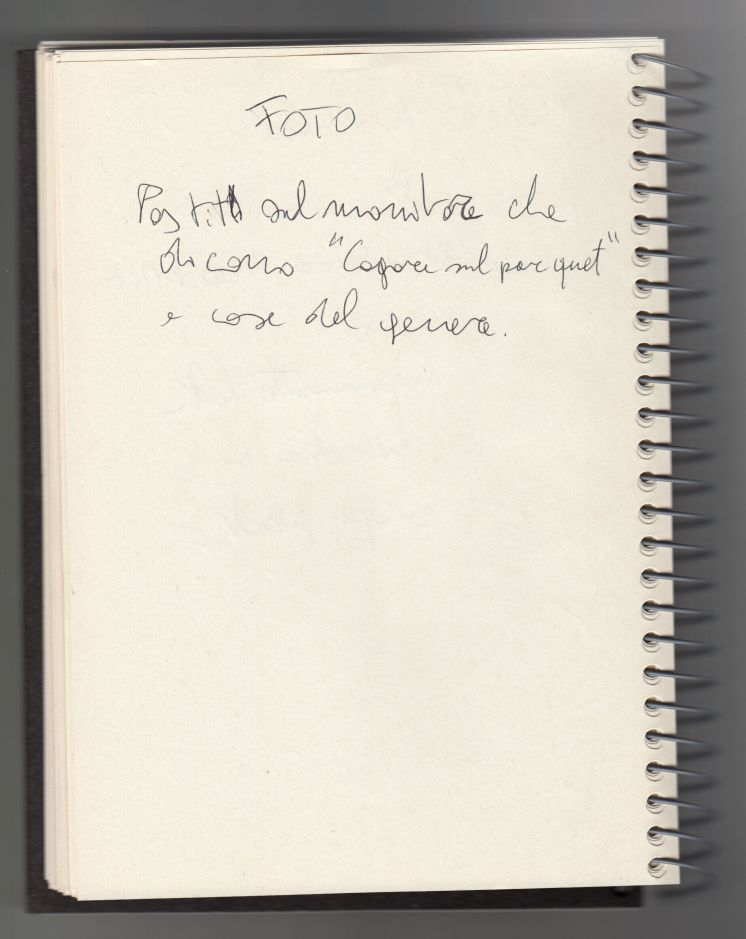 FOTO
Post it sul monitore che
dicono "Capou sul parquet"
e cose del genere.